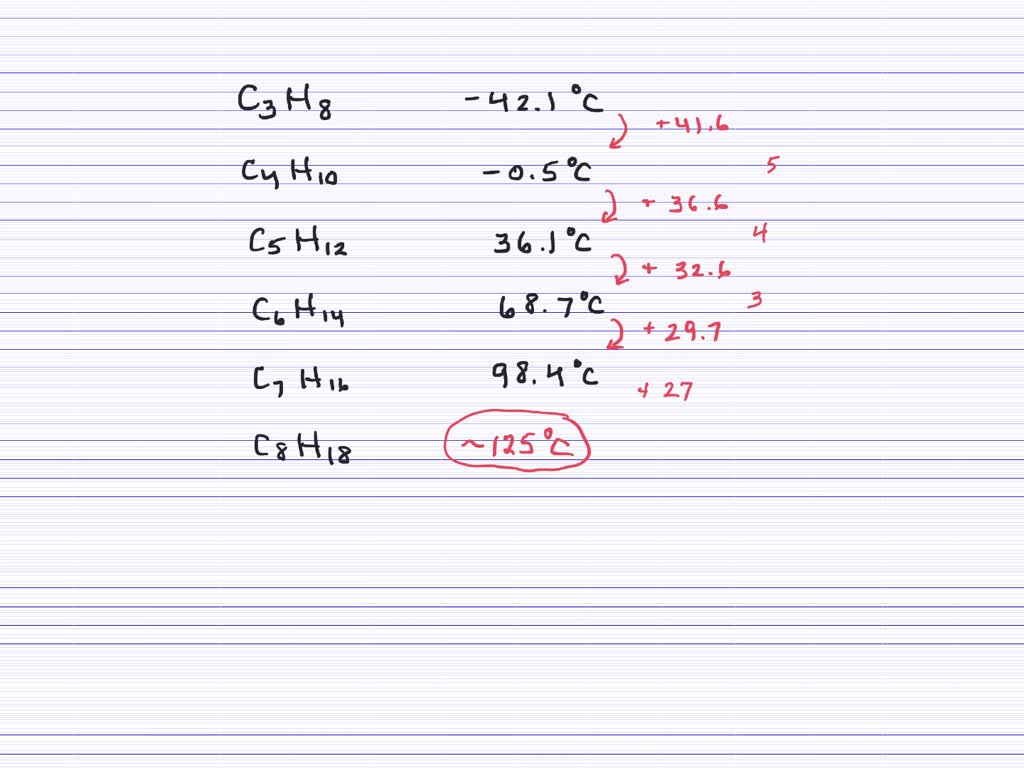 C₃H₈ -42.1 °C
+41.6
C₄H₁₀ -0.5 °C
5
+ 36.6
C₅H₁₂ 36.1 °C
4
+ 32.6
C₆H₁₄ 68.7 °C
3
+ 29.7
C₇H₁₆ 98.4 °C
+ 27
C₈H₁₈ ~125 °C